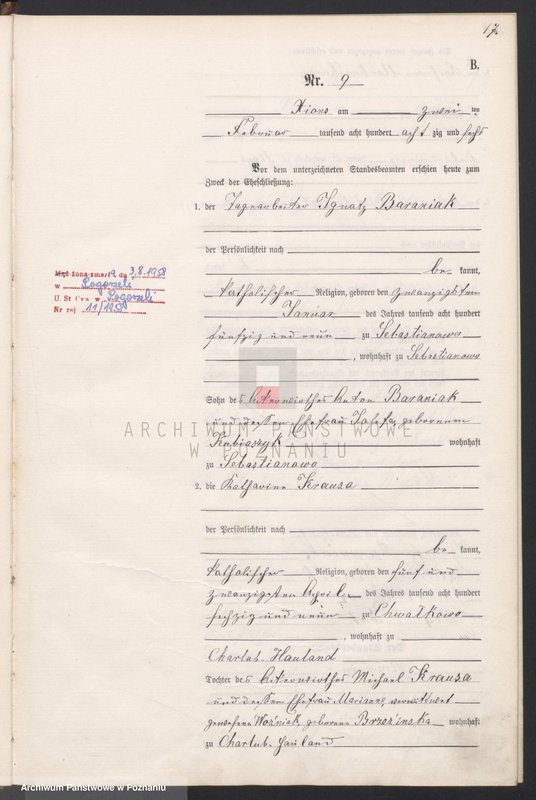 17
B.
Nr. 9
Xions am zwei ten
Februar tausend acht hundert acht zig und sechs
Vor dem unterzeichneten Standesbeamten erschien heute zum
Zweck der Eheschließung:
1. der Tagearbeiter Ignatz Baraniak
der Persönlichkeit nach
be kannt,
katholischer Religion, geboren den zwanzigsten
Januar des Jahres tausend acht hundert
fünfzig und neun zu Sebastianowo
, wohnhaft zu Sebastianowo
Sohn des Ackerwirthes Anton Baraniak
und dessen Ehefrau Josefa, geborenen
Kubiaszyk wohnhaft
zu Sebastianowo
2. die Katharina Krausa
der Persönlichkeit nach
be kannt,
katholischer Religion, geboren den fünf und
zwanzigsten April des Jahres tausend acht hundert
sechzig und neun zu Chwałkowo
, wohnhaft zu
Chartub. Hauland
Tochter des Ackerwirthes Michael Krausa
und dessen Ehefrau Marianna, verwittwet
gewesene Woźniak, geborene Brzezinska wohnhaft
zu Chartub. Hauland
żona zmarła dn 3.8.1958
w Pogorzeli
U. St Cyw. w Pogorzeli
Nr rej 11/1958
ARCHIWUM PAŃSTWOWE
W POZNANIU
Archiwum Państwowe w Poznaniu